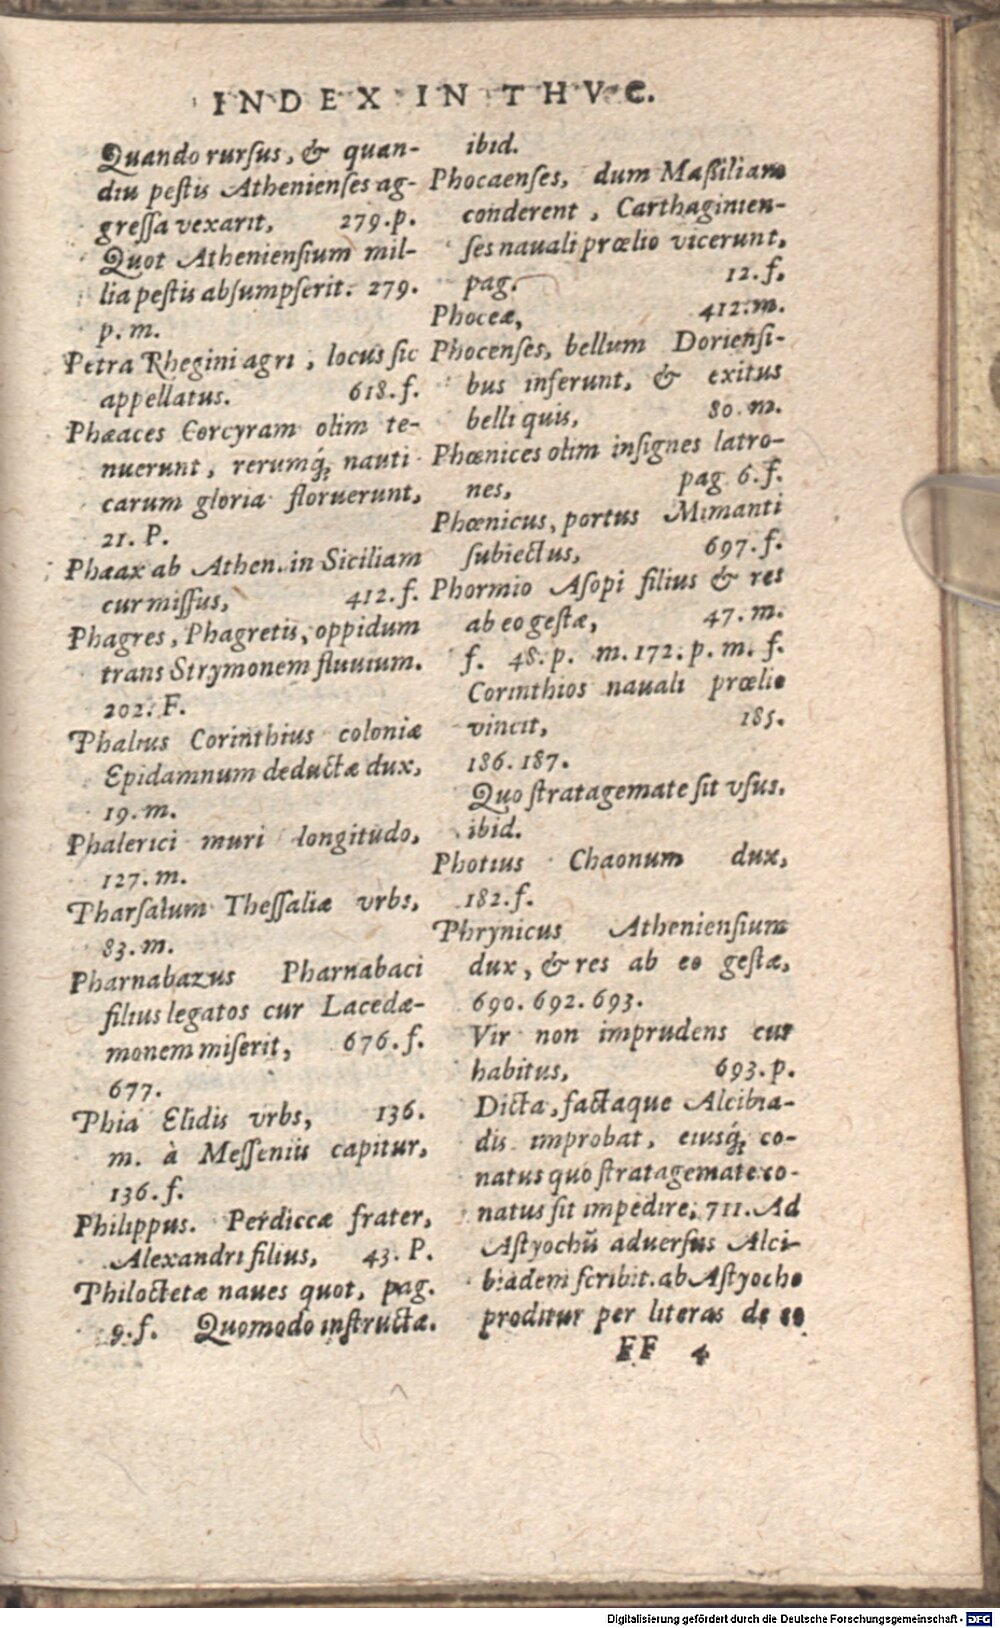 INDEX IN THVC.
Quando rursus, & quan-
diu pestis Athenienses ag-
gressa vexarit, 279.p.
Quot Atheniensium mil-
lia pestis absumpserit. 279.
p. m.
Petra Rhegini agri, locus sic
appellatus. 618. f.
Phæaces Corcyram olim te-
nuerunt, rerumq́; nauti
carum gloria floruerunt,
21. P.
Phæax ab Athen. in Siciliam
cur missus, 412. f.
Phagres, Phagretis, oppidum
trans Strymonem fluuium.
202. F.
Phalius Corinthius coloniæ
Epidamnum deductæ dux,
19. m.
Phalerici muri longitudo,
127. m.
Pharsalum Thessaliæ vrbs,
83. m.
Pharnabazus Pharnabaci
filius legatos cur Lacedæ-
monem miserit, 676. f.
677.
Phia Elidis vrbs, 136.
m. à Messeniis capitur,
136. f.
Philippus. Perdiccæ frater,
Alexandri filius, 43. P.
Philoctetæ naues quot, pag.
9. f. Quomodo instructæ.
ibid.
Phocaenses, dum Massiliam
conderent, Carthaginien-
ses nauali prœlio vicerunt,
pag. 12. f.
Phoceæ, 412. m.
Phocenses, bellum Doriensi-
bus inferunt, & exitus
belli quis, 80. m.
Phœnices olim insignes latro-
nes, pag 6. f.
Phœnicus, portus Mimanti
subiectus, 697. f.
Phormio Asopi filius & res
ab eo gestæ, 47. m.
f. 48. p. m. 172. p. m. f.
Corinthios nauali prœlio
vincit, 185.
186. 187.
Quo stratagemate sit vsus.
ibid.
Photius Chaonum dux,
182. f.
Phrynicus Atheniensium
dux, & res ab eo gestæ,
690. 692. 693.
Vir non imprudens cur
habitus, 693. p.
Dicta, factaque Alcibia-
dis improbat, eiusq́; co-
natus quo stratagemate co-
natus sit impedire, 711. Ad
Astyochū aduersus Alci-
biadem scribit. ab Astyocho
proditur per literas de eo
FF 4
Digitalisierung gefördert durch die Deutsche Forschungsgemeinschaft - DFG